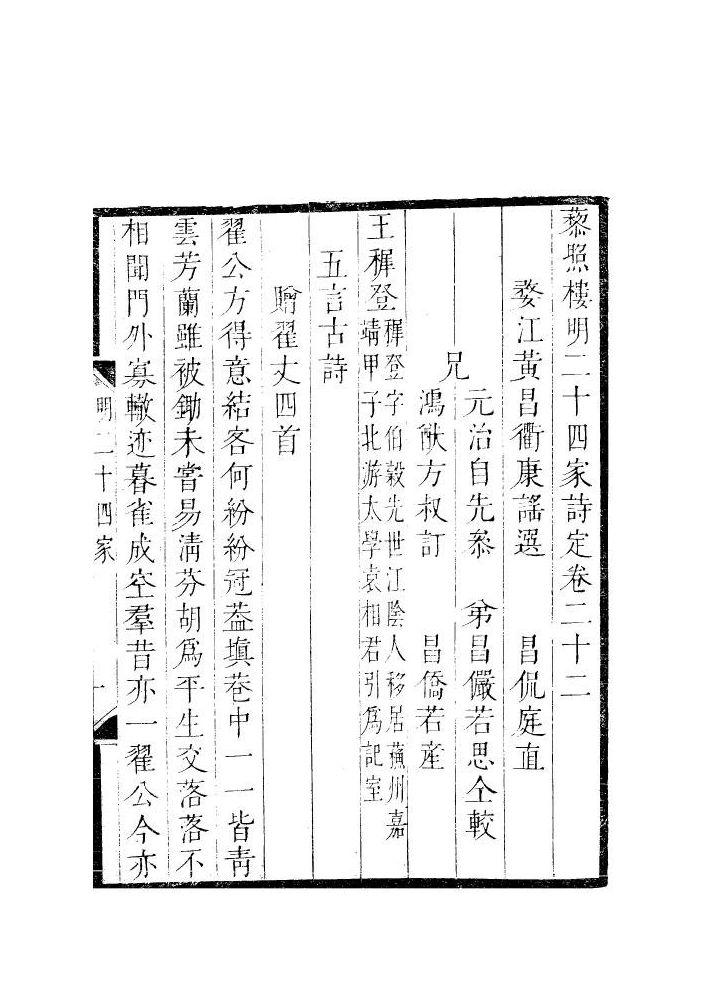 藜照樓明二十四家詩定卷二十二
婁江黃昌衢康謠選　昌侃庭直
兄
元治自先叅　弟昌儼若思仝較
鴻猷方叔訂　昌僑若產
王穉登
穉登字伯穀先世江陰人移居蘓州嘉
靖甲子北游太學袁相君引爲記室
五言古詩
贈翟丈四首
翟公方得意結客何紛紛冠葢塡巷中一一皆靑
雲芳蘭雖被鋤未嘗易淸芬胡爲平生交落落不
相聞門外寡轍迹暮雀成空羣昔亦一翟公今亦
明二十四家
一